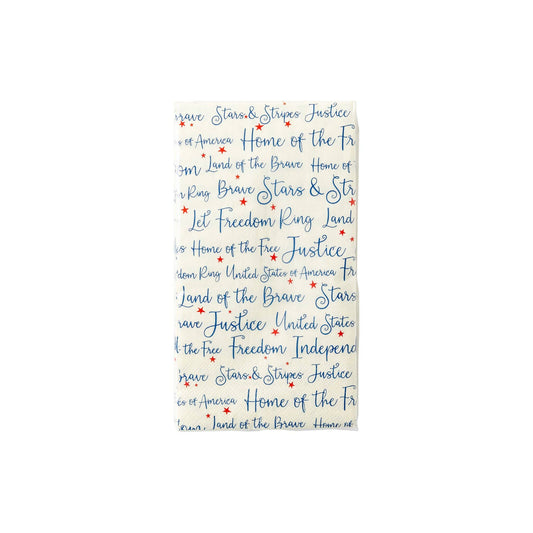 Brave Stars & Stripes Justice
of America Home of the Fr
Land of the Brave Home of
Ring Brave Stars & Str
Let Freedom Ring Land
Home of the Free Justice
Freedom Ring United States of America Fr
Land of the Brave Stars
Brave Justice United States
the Free Freedom Independ
Brave Stars & Stripes Justice
es of America Home of the Fr
Land of the Brave Home of